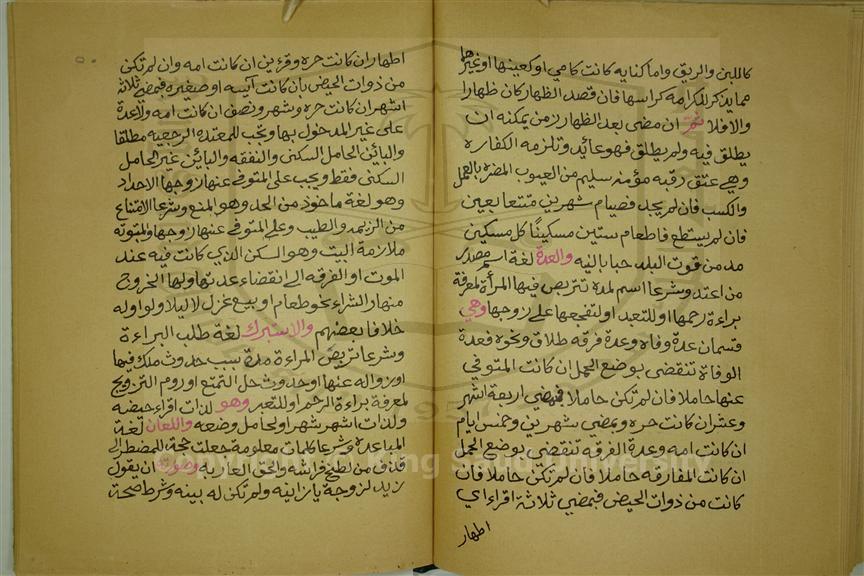 كاللبن والريق واما كنايه كانت كامي او كعينها او غيرها
مما يذكر للكرامه كراسها فان قصد الظهار كان ظهارا
والافلا ثم ان مضى بعد الظهار زمن يمكنه ان
يطلق فيه ولم يطلق فهو عائد وتلزمه الكفاره
وهي عتق رقبه مؤمنه سليم من العيوب المضره بالعمل
والكسب فان لم يجد فصيام شهرين متتعابعين
فان لم يستطع فاطعام ستين مسكينًا كل مسكين
مد من قوت البلد حبا باليه والعدة لغة اسم مصدر
من اعتد وشرعا اسم لمدة تتربص فيها المرأة لمعرفة
براءة رحمها او للتعبد او لتفجعها على زوجها وهي
قسمان عدة وفاه وعدة فرقه طلاق ونحوه فعدة
الوفاة تنقضي بوضع الحمل ان كانت المتوفي
عنها حاملا فان لم تكن حاملا فبمضي اربعة اشهر
وعشر ان كانت حره وبمضي شهرين وخمس ايام
ان كانت امه وعدة الفرقه تنقضي بوضع الحمل
ان كانت المفارقه حاملا فان لم تكن حاملا فان
كانت من ذوات الحيض فبمضي ثلاثة اقراء اي
اطهار
اطهار ان كانت حره وقرءين ان كانت امه وان لم تكن
من ذوات الحيض بان كانت آيسه او صغيره فبمضي ثلاثة
اشهر ان كانت حره وشهر ونصف ان كانت امه ولا عدة
على غير المدخول بها ويجب للمعتدة الرجعيه مطلقا
والبائن الحامل السكنى والنفقه والبائن غير الحامل
السكنى فقط ويجب على المتوفى عنها زوجها الاحداد
وهو لغة ماخوذ من الحد وهو المنع وشرعا الامتناع
من الزينه والطيب وعلى المتوفى عنها زوجها والمبتوته
ملازمة البيت وهو السكن الذي كانت فيه عند
الموت او الفرقه الى انقضاء عدتها ولها الخروج
منهار الشراء نحو طعام او بيع غزل لا ليلا ولو اوله
خلافا بعضهم والاستبرك لغة طلب البراءة
وشرعا تربص المراءة مدة بسبب حدوث ملك فيها
او زواله عنها او حدوث حل التمتع او روم التزويج
لمعرفة براءة الرحم او للتعبد وهو لذات اقراء حيضه
ولذات اشهر شهر او لحامل وضعه واللعان لغة
المباعدة وشرعا كلمات معلومة جعلت حجة للمضطر الى
قذف من لطخ فراشه والحق العار به وصورة ان يقول
زيد لزوجة يا زانيه ولم تكن له بينه وشرط صحة